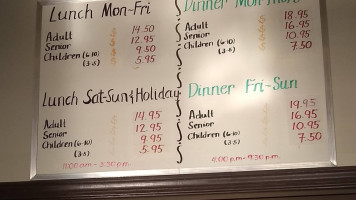 Lunch Mon-Fri
Adult $ 14.50
Senior $ 12.95
Children (6-10) $ 9.50
(3-5) $ 5.95
Dinner Mon-Thurs
Adult $ 18.95
Senior $ 16.95
Children (6-10) $ 10.95
(3-5) $ 7.50
Lunch Sat-Sun & Holiday
Adult $ 14.95
Senior $ 12.95
Children (6-10) $ 9.95
(3-5) $ 5.95
11:00 am - 3:30 p.m.
Dinner Fri-Sun
Adult $ 19.95
Senior $ 16.95
Children (6-10) $ 10.95
(3-5) $ 7.50
4:00 p.m - 9:30 pm.